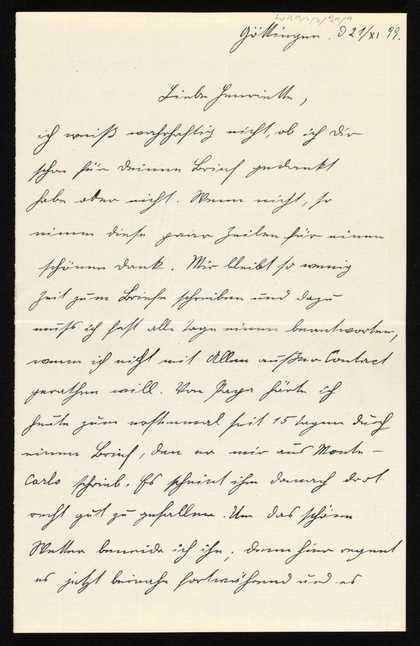 Göttingen. d 21/XI 99.
Liebe Henriette,
ich weiß wahrhaftig nicht, ob ich Dir
schon für Deinen Brief gedankt
habe oder nicht. Wenn nicht, so
nimm diese paar Zeilen für einen
schönen Dank. Mir bleibt so wenig
Zeit zum Briefe schreiben und dazu
muß ich fast alle Tage einen beantworten,
wenn ich nicht mit Allen außer Contact
gerathen will. Von Papa hörte ich
heute zum erstenmal seit 15 Tagen durch
einen Brief, den er mir aus Monte-
Carlo schrieb. Es scheint ihm danach dort
recht gut zu gefallen. Um das schöne
Wetter beneide ich ihn, denn hier regnet
es jetzt beinahe fortwährend und es